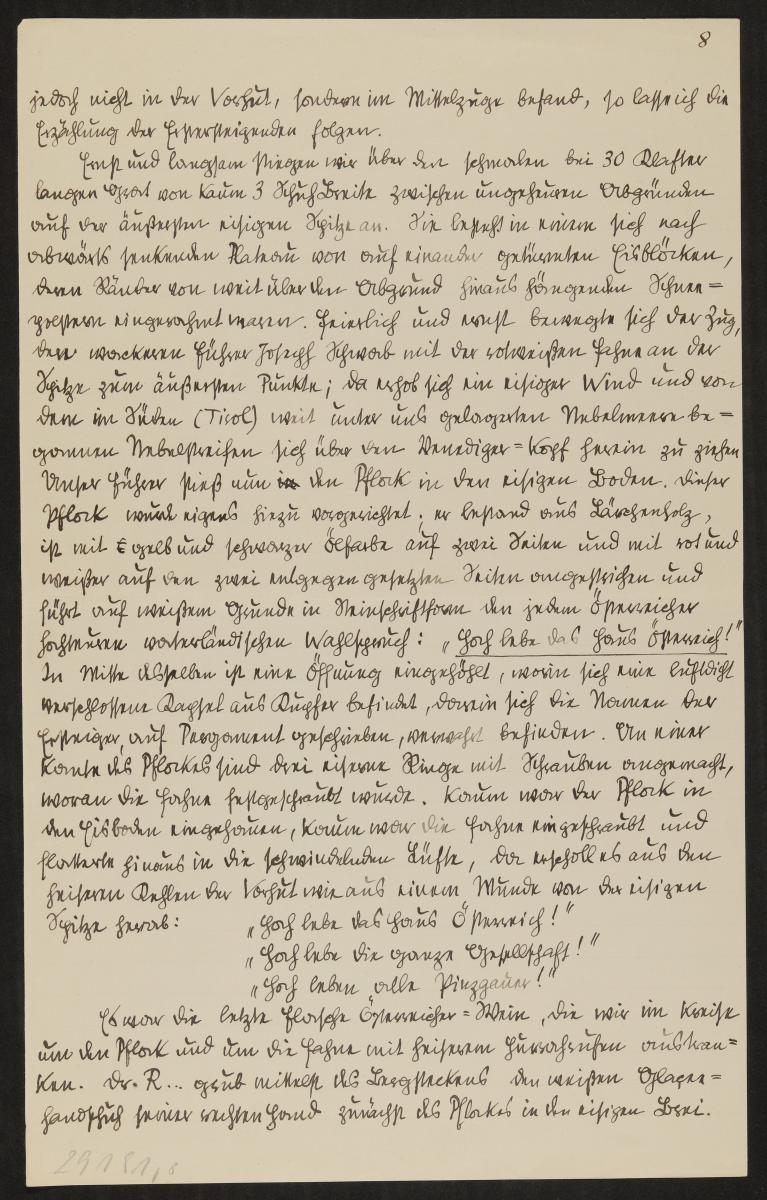 8
jedoch nicht in der Vorhut, sondern im Mittelzuge befand, so lasse ich die
Erzählung der Erstersteigenden folgen.
Ernst und langsam stiegen wir über den schmalen bei 30 Klafter
langen Grat von kaum 3 Schuh Breite zwischen ungeheuren Abgründen
auf der äußersten eisigen Spitze an. Sie besteht in einem sich nach
abwärts senkenden Plateau von auf einander getürmten Eisblöcken,
deren Ränder von weit über den Abgrund hinaus hängenden Schnee=
polstern eingerahmt waren. Feierlich und ernst bewegte sich der Zug,
dem wackeren Führer Joseph Schwab mit der rotweißen Fahne an der
Spitze zum äußersten Punkte; da erhob sich ein eisiger Wind und von
dem im Süden (Tirol) weit unter uns gelagerten Nebelmeere be=
gannen Nebelstreifen sich über den Venediger=Kopf herein zu ziehen
Unser Führer stieß nun den Pflock in den eisigen Boden. Dieser
Pflock wurde eigens hiezu vorgerichtet; er bestand aus Lärchenholz,
ist mit gelb und schwarzer Ölfarbe auf zwei Seiten und mit rot und
weißer auf den zwei entgegengesetzten Seiten angestrichen und
führt auf weißem Grunde in Steinschriftform den jedem Österreicher
hochteuren vaterländischen Wahlspruch: „Hoch lebe das Haus Österreich!"
In Mitte desselben ist eine Öffnung eingehöhlt, worin sich eine luftdicht
verschlossene Kapsel aus Kupfer befindet, darein sich die Namen der
Ersteiger, auf Pergament geschrieben, verwahrt befinden. An einer
Kante des Pflockes sind drei eiserne Ringe mit Schrauben angemacht,
woran die Fahne festgeschraubt wurde. Kaum war der Pflock in
den Eisboden eingehauen, kaum war die Fahne eingeschraubt und
flatterte hinaus in die schwindelnden Lüfte, da erscholl es aus den
heiseren Kehlen der Vorhut wie aus einem Munde von der eisigen
Spitze herab: „Hoch lebe das Haus Österreich!"
„Hoch lebe die ganze Gesellschaft!"
„Hoch leben alle Pinzgauer!"
Es war die letzte Flasche Österreicher=Wein, die wir im Kreise
um den Pflock und um die Fahne mit heiserem Hurrahrufen austran=
ken. Dr. R... grub mittelst des Bergsteckens den weißen Glacee=
handschuh seiner rechten Hand zunächst des Pflockes in den eisigen Brei.
29151,8